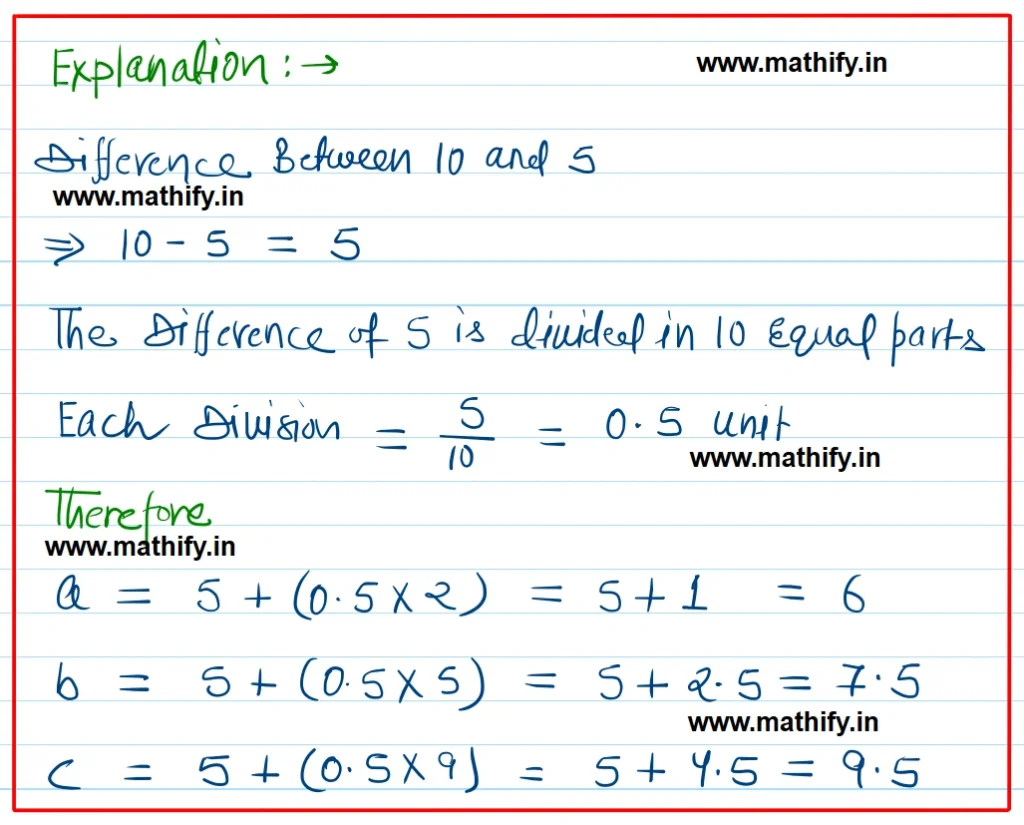 Explanation : →
www.mathify.in
Difference Between 10 and 5
www.mathify.in
⇒ 10 - 5 = 5
The Difference of 5 is divided in 10 Equal parts
Each Division = 5/10 = 0.5 unit
www.mathify.in
Therefore
www.mathify.in
a = 5 + (0.5 × 2) = 5 + 1 = 6
b = 5 + (0.5 × 5) = 5 + 2.5 = 7.5
www.mathify.in
c = 5 + (0.5 × 9) = 5 + 4.5 = 9.5